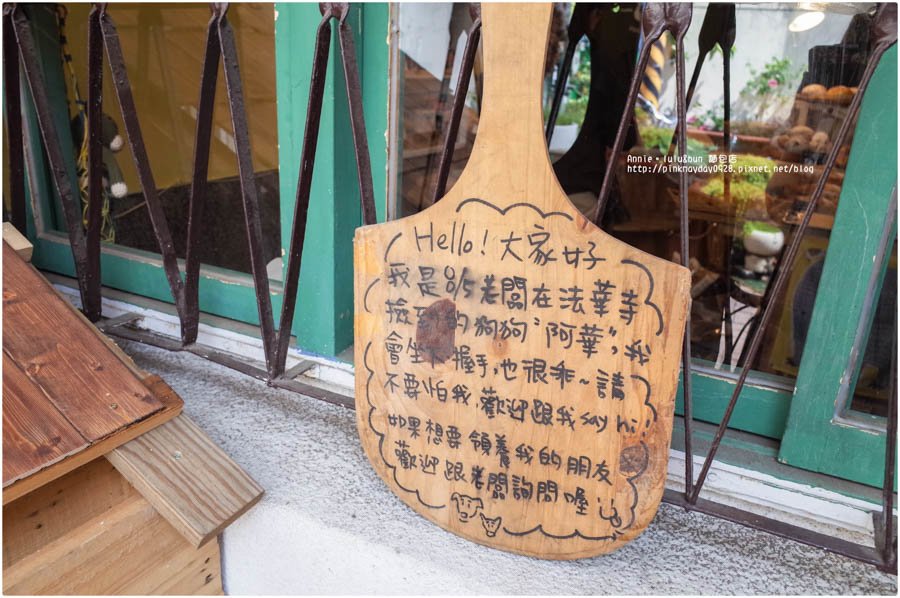 Annie • lulu&bun 麵包店
http://pinknayday0428.pixnet.net/blog
Hello! 大家好
我是8/5老闆在法華寺
撿到的狗狗"阿華",我
會坐下握手,也很乖~請
不要怕我,歡迎跟我say hi!
如果想要領養我的朋友
歡迎跟老闆詢問喔